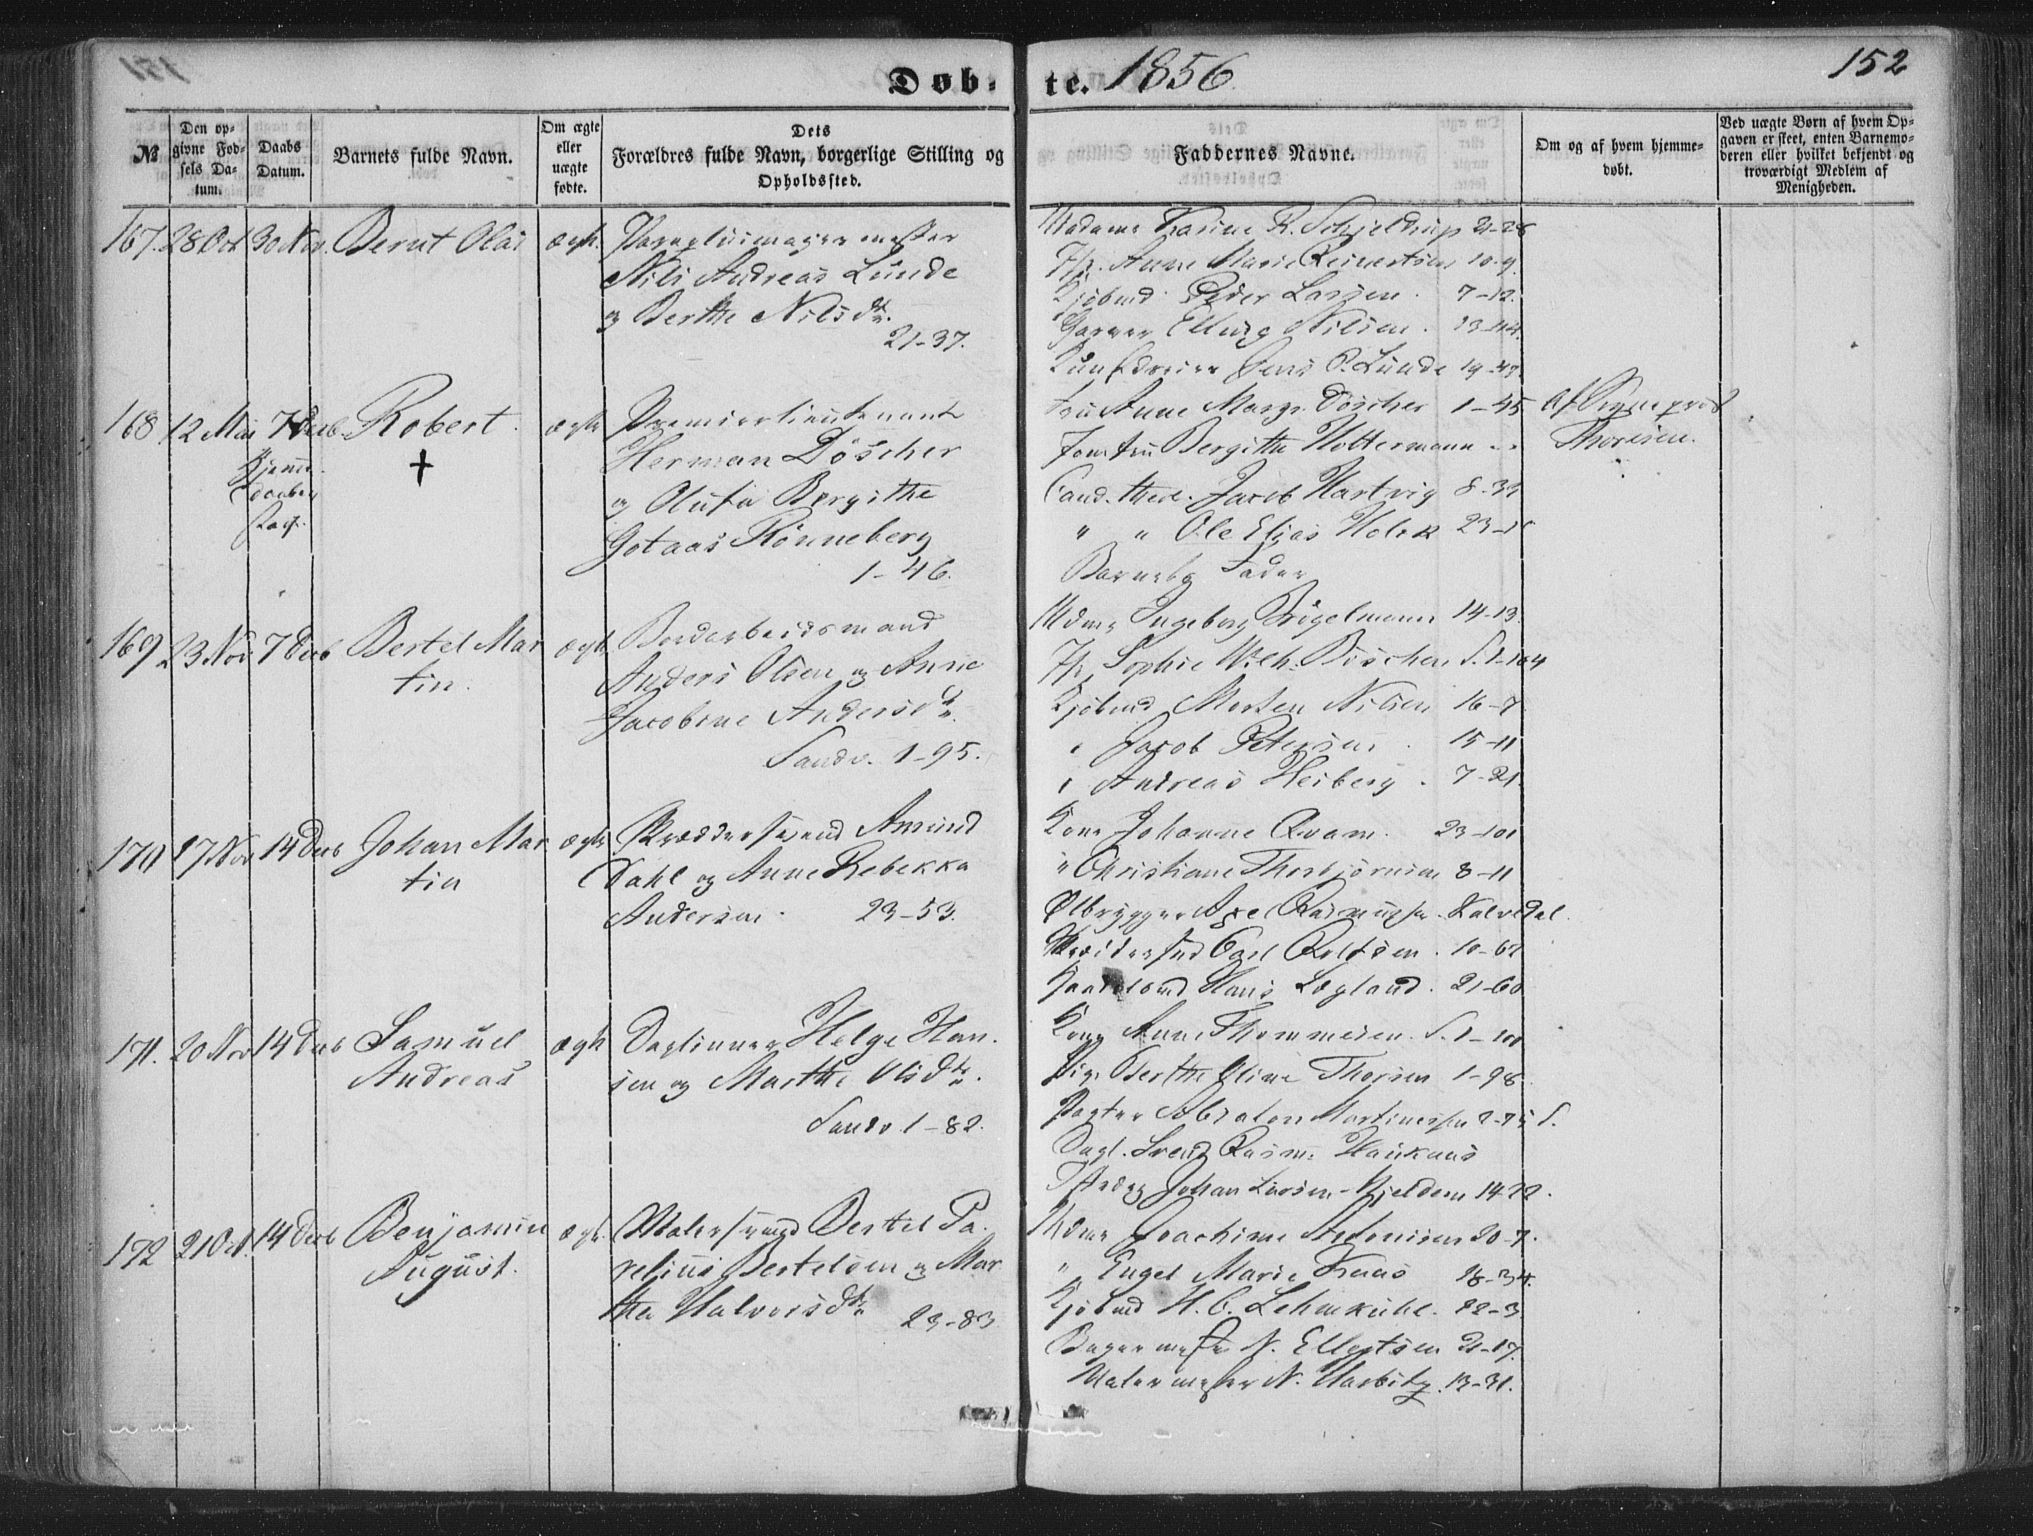 151
Døb-
te. 1856.
152
№
Den op-
givne Fød-
sels Da-
tum.
Daabs
Datum.
Barnets fulde Navn.
Om ægte
eller
uægte
fødte.
Dets
Forældres fulde Navn, borgerlige Stilling og
Opholdssted.
Faddernes Navne.
Om og af hvem hjemme-
døbt.
Ved uægte Børn af hvem Op-
gaven er skeet, enten Barnemo-
deren eller hvilket bekjendt og
troværdigt Medlem af
Menigheden.
167. 28 Oct 30 Nov. Bernt Olai ægte
Nils Andreas Lunde
og Berthe Nilsdtr.
21-37.
Madame Karine R. Schjeldrup 21-28
Anne Marie Reinertsen 10-9
Kjøbmd Peder Larsen. 7-12.
Garver Elling Nilsen. 23-114.
Jens P. Lunde 19-47.
168 12 Mai 7 Decb. Robert. ægte
†
Premierlieutenant
Herman Döscher
og Olufa Bergithe
Gotaas Rønneberg
1-46.
Fru Anne Margr. Döscher 1-45
Jomfru Bergitte Woltermann
Cand. theol. Jacob Hartvig 8-39
" " Ole Elias Holck 23-
Barnets Fader
Af
Thoresen.
169 23 Nov 7 Decb Bertel Mar
tin. ægte
Bordarbeidsmand
Anders Olsen og Anne
Jacobine Andersdtr.
Sandv. 1-95.
Mdme Ingeborg Brigelmann 14-13.
Sophie Wilh. Döscher S. 1-164
Kjøbmd Morten Nilsen 16-7
" Jacob Petersen. 15-11
" Andreas Heiberg. 7-21.
170 17 Nov 14 Decb Johan Mar
tin ægte
Skræddersvend Amund
Dahl og Anne Rebekka
Andersen. 23-53.
Kone Johanne Qvam. 23-101
" Christiane Thorbjørnsen 8-11
Ølbrygger Axel Rasmussen. Kalvedal.
Skræddersvd Carl Roldsen. 10-61
Hans Løgland. 21-60
171. 20 Nov 14 Decb Samuel
Andreas ægte
Daglønner Helge Han-
sen og Marthe Olsdtr.
Sandv 1-82.
Kone Anne Thommesen. S. 1-100
Pige Berthe Oline Thorsen 1-98.
Absalon Martinussen 2-75 S.
Dagl. Svend Rasm. Haukaas
Johan Larsen Kjeldsen 14-22.
172 21 Oct. 14 Decb Benjamin
August. ægte
Malersvend Bertel Pa-
relius Bertelsen og Mar
tha Halvorsdtr 23-83
Mdme Joachime Antonisen 20-7.
" Engel Marie Knaas 18-34.
Kjøbmd H. C. Lehmkuhl. 22-3.
Bagermester N. Ellertsen 21-17.
Malermester N. Harbitz. 13-31.